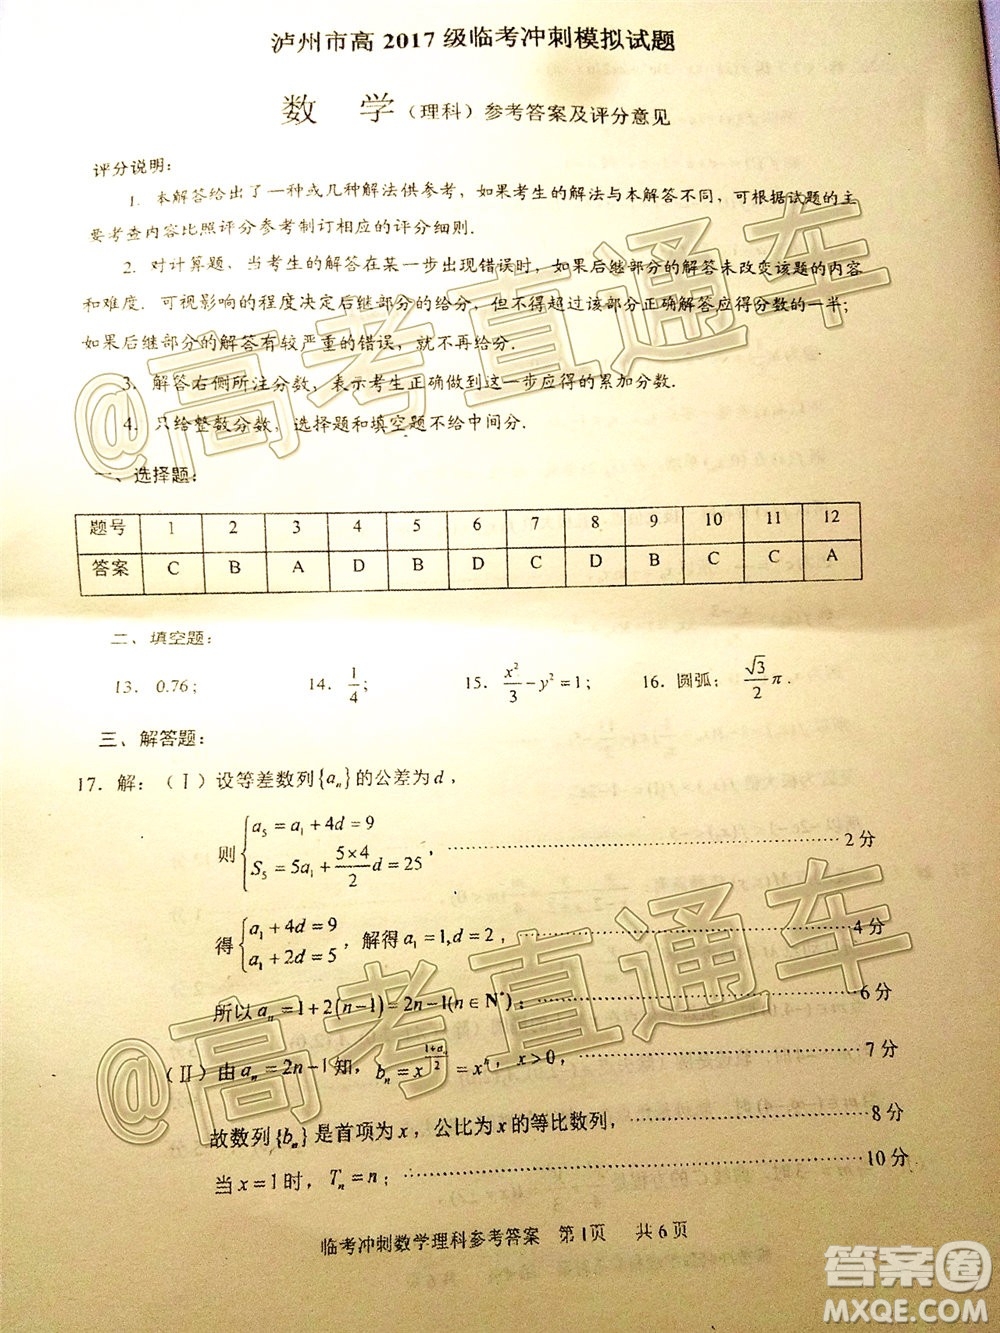 泸州市高 2017 级临考冲刺模拟试题
数 学（理科）参考答案及评分意见
评分说明：
1. 本解答给出了一种或几种解法供参考，如果考生的解法与本解答不同，可根据试题的主
要考查内容比照评分参考制订相应的评分细则.
2. 对计算题、当考生的解答在某一步出现错误时，如果后继部分的解答未改变该题的内容
和难度. 可视影响的程度决定后继部分的给分，但不得超过该部分正确解答应得分数的一半；
如果后继部分的解答有较严重的错误，就不再给分.
3. 解答右侧所注分数，表示考生正确做到这一步应得的累加分数.
4. 只给整数分数，选择题和填空题不给中间分.
一、选择题：
题号 1 2 3 4 5 6 7 8 9 10 11 12
答案 C B A D B D C D B C C A
二、填空题：
13. 0.76； 14. 1/4； 15. x²/3 − y² = 1； 16. 圆弧；√3/2 π.
三、解答题：
17. 解：（Ⅰ）设等差数列{aₙ}的公差为d，
则 { a₅ = a₁ + 4d = 9
S₅ = 5a₁ + (5×4)/2 d = 25 ，……………………2 分
得 { a₁ + 4d = 9
a₁ + 2d = 5 ，解得 a₁ = 1, d = 2，……………………4 分
所以 aₙ = 1 + 2(n−1) = 2n−1(n ∈ N*)；……………………6 分
（Ⅱ）由 aₙ = 2n−1 知，bₙ = x^((1+aₙ)/2) = xⁿ，x > 0，……………………7 分
故数列{bₙ}是首项为 x，公比为 x 的等比数列，……………………8 分
当 x = 1 时，Tₙ = n；……………………10 分
临考冲刺数学理科参考答案 第 1 页 共 6 页
@高考直通车
@高考直通车
答案圈
MXQE.COM